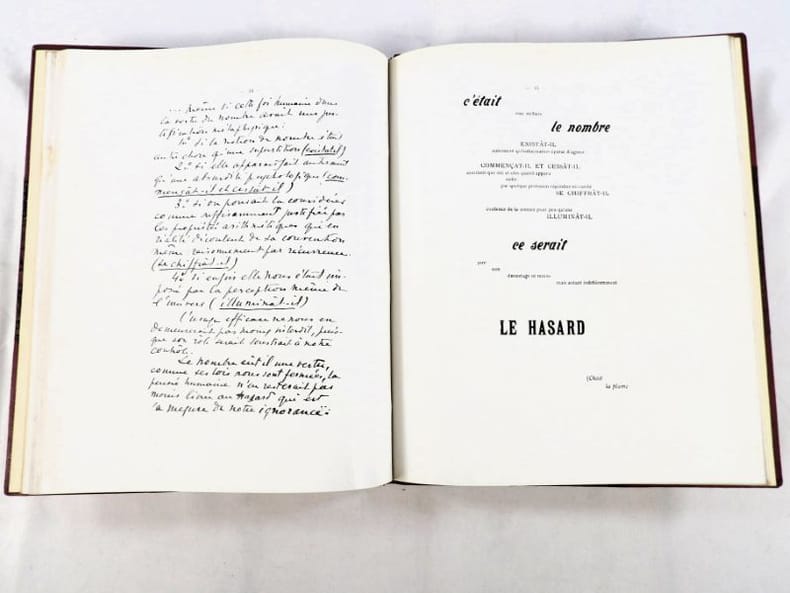 ... même si cette foi humaine dans
la vertu du nombre avait une jus-
tification métaphysique:
1º si la notion du nombre était
autre chose qu'une superstition (existât-il)
2º si elle apparaissait autrement
qu'une absurdité psychologique (com-
mençât-il et cessât-il)
3º si on pouvait la considérer
comme suffisamment justifiée par
les propriétés arithmétiques qui en
réalité découlent de la convention
même raisonnement par récurrence.
(se chiffrât-il)
4º si enfin elle nous était im-
posée par la perception même de
l'univers (illuminât-il)
L'usage efficace ne nous en
demeurerait pas moins interdit, puis-
que son rôle serait soustrait à notre
contrôle.
Le nombre eût-il une vertu,
comme ses lois nous sont fermées, la
pensée humaine n'en resterait pas
moins livrée au Hasard qui est
la mesure de notre ignorance:
c'était
le nombre
EXISTÂT-IL
autrement qu'hallucination éparse d'agonie
COMMENÇÂT-IL ET CESSÂT-IL
sourdant que nié et clos quand apparu
enfin
par quelque profusion répandue en rareté
SE CHIFFRÂT-IL
évidence de la somme pour peu qu'une
ILLUMINÂT-IL
ce serait
pire
non
davantage ni moins
mais autant indifféremment
LE HASARD
(Choit
la plume